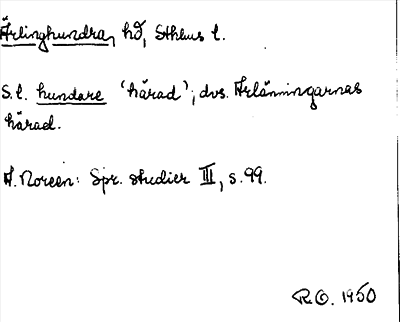 Ärlinghundra, hd, Sthlms l.
S.l. hundare 'härad'; dvs. Ärlänningarnas
härad.
A. Noreen: Spr. studier III, s. 99.
R.O. 1950